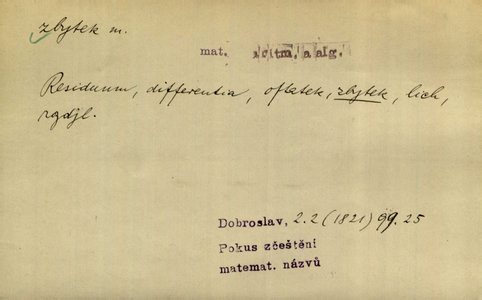 zbytek m.
mat. aritm. a alg.
Residuum, differentia, oſtatek, zbytek, lich,
rozdjl.
Dobroslav, 2.2 (1821) 99.25
Pokus zčeštění
matemat. názvů